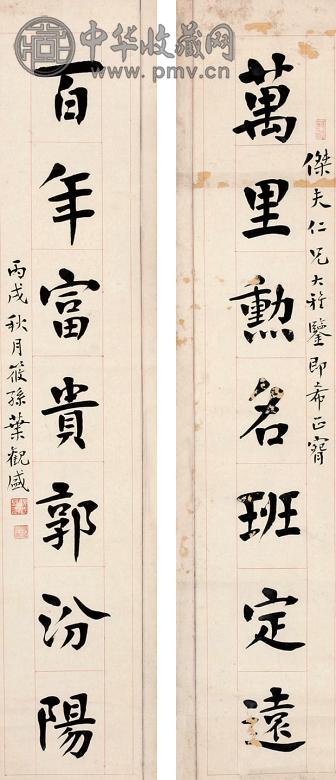 中华收藏网
www.pmv.cn
傑夫仁兄大雅鑒即希正腕
萬里勳名班定遠
百年富貴郭汾陽
丙戌秋月筱孫葉觀盛